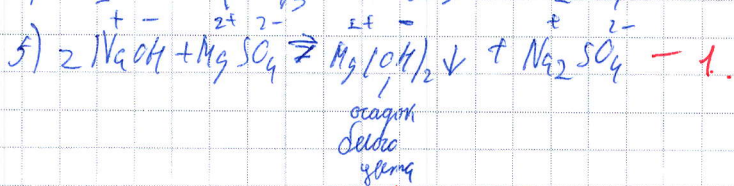 + - 2+ 2- 2+ - + 2-
5) 2 NaOH + MgSO₄ ⇄ Mg(OH)₂ ↓ + Na₂SO₄ - 1.
осадок
белого
цвета